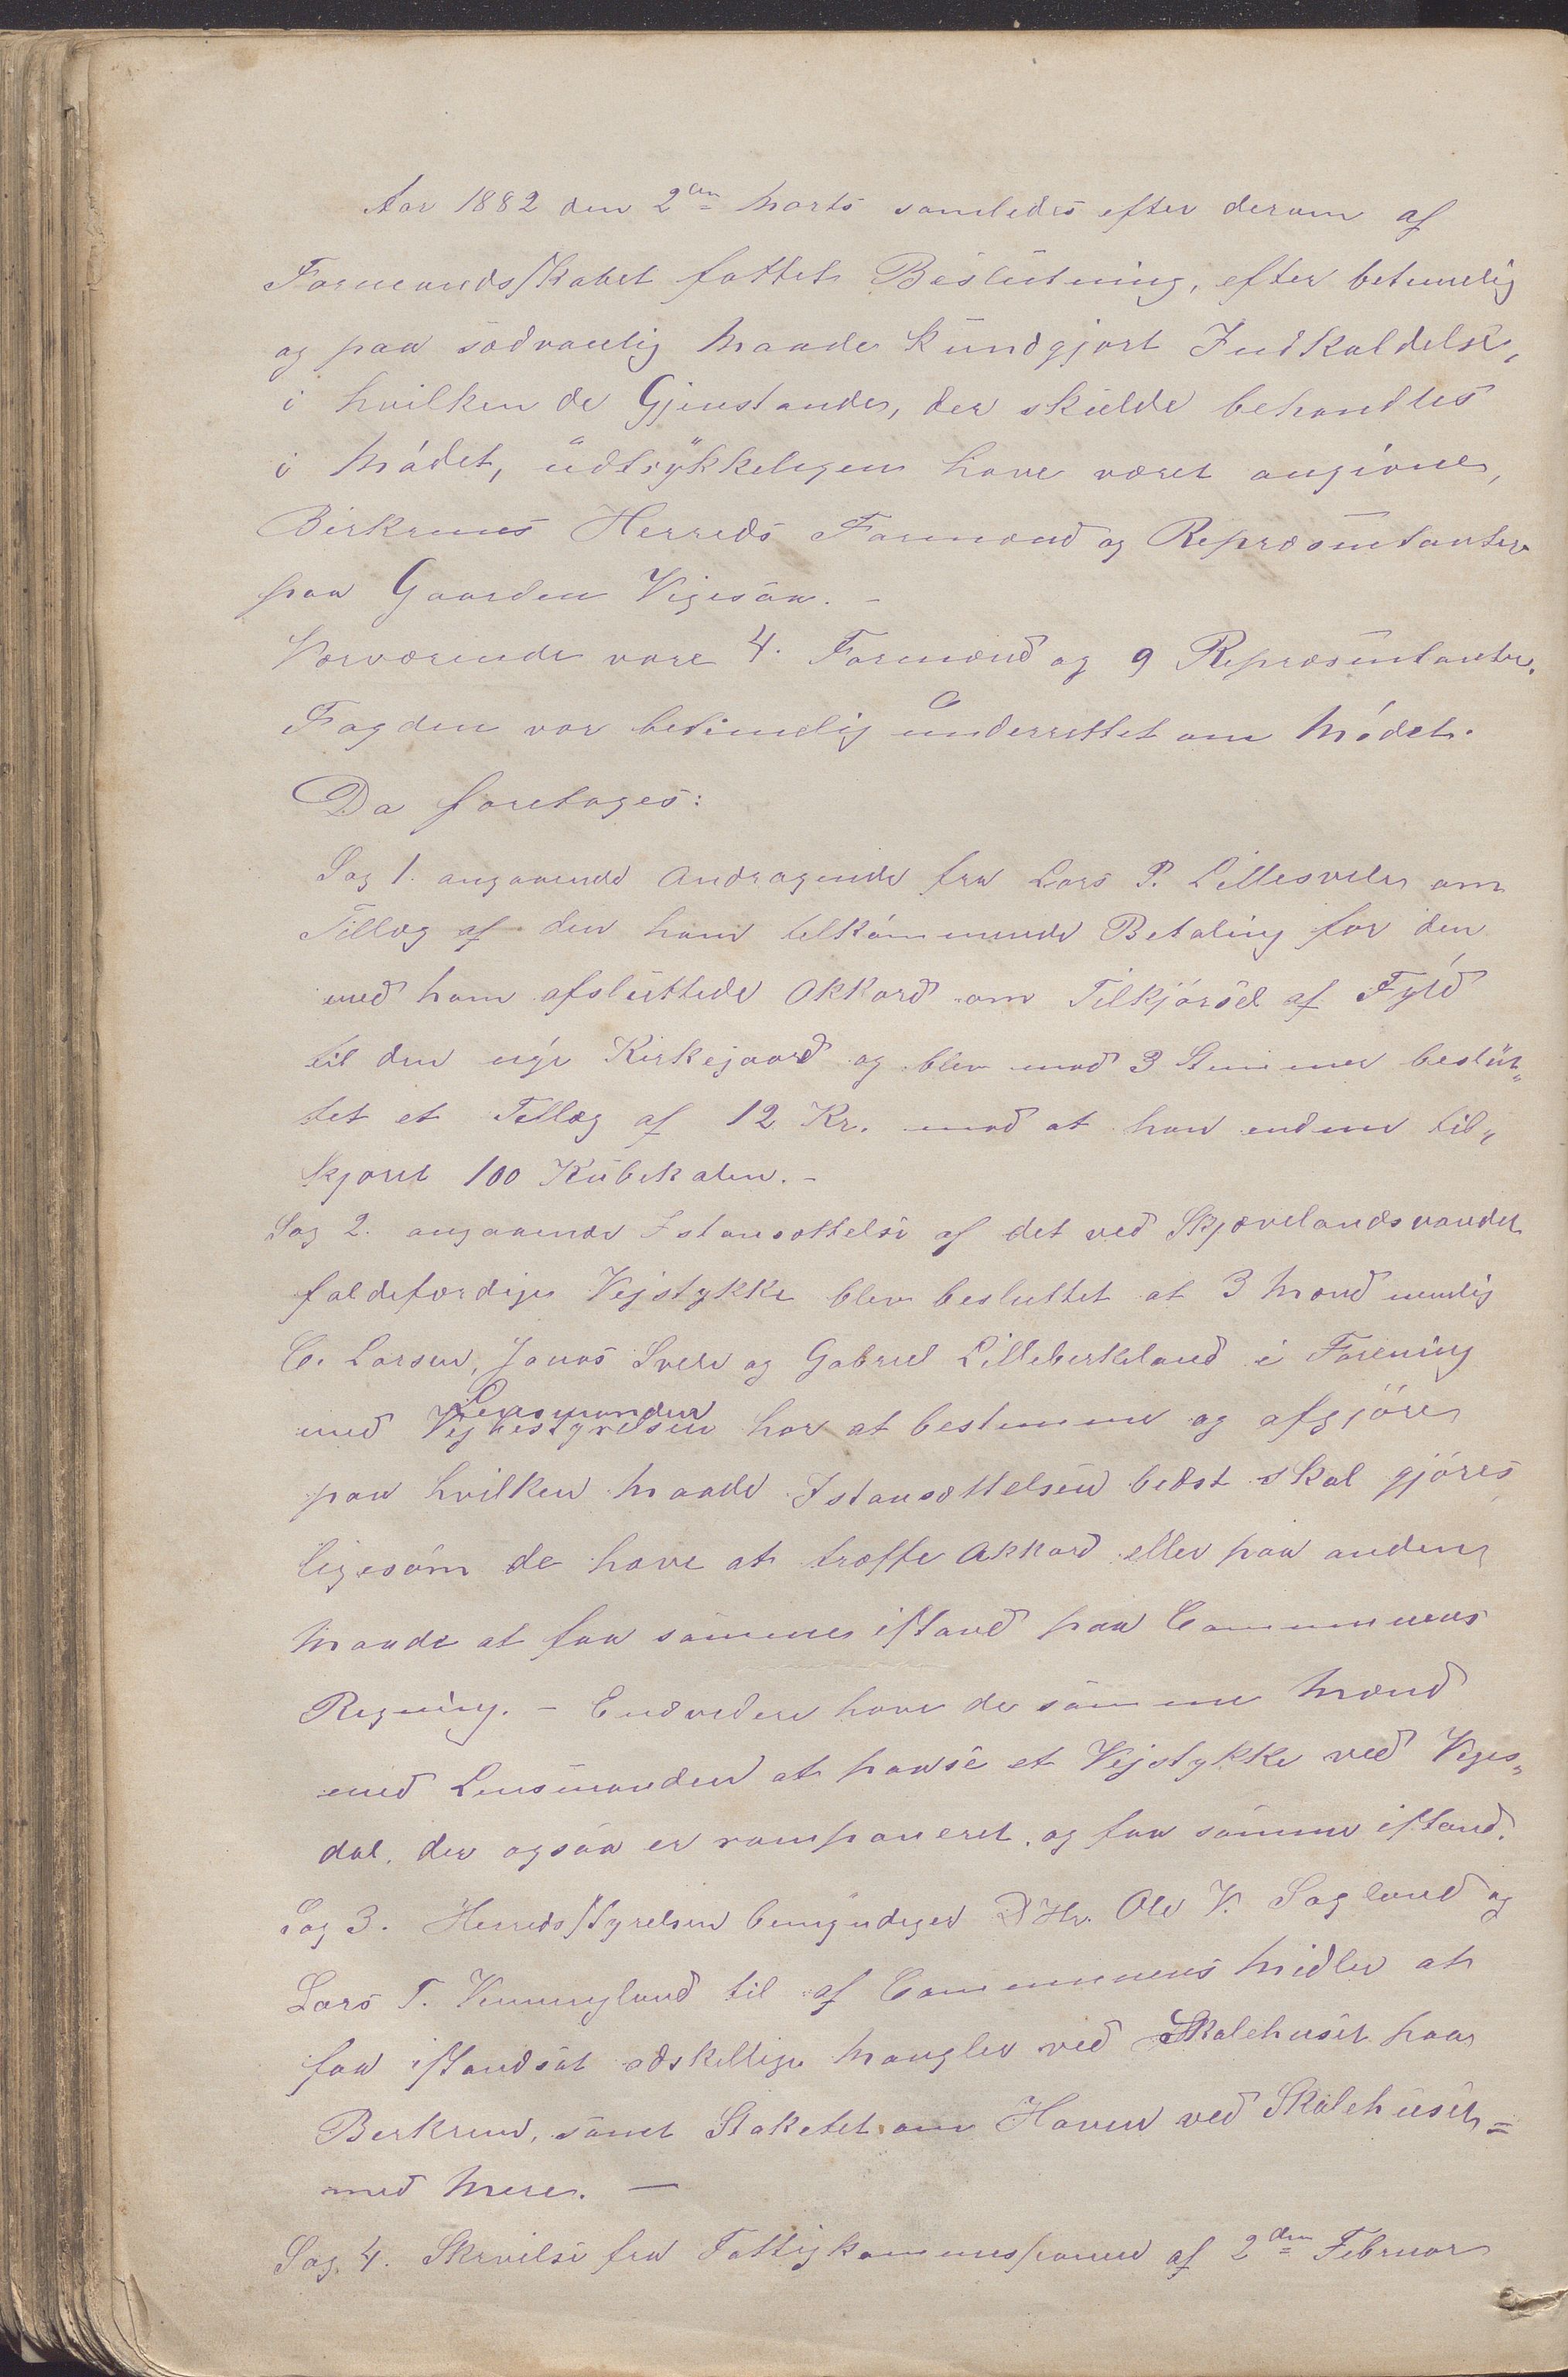 Aar 1882 den 2den Marts samledes efter derom af
Formandsskabet fattet Beslutning, efter betimelig
og paa sædvanlig Maade kundgjort Indkaldelse,
i hvilken de Gjenstande, der skulde behandles
i Mödet, udtrykkeligen have været angivne,
Birkrems Herreds Formænd og Repræsentanter
paa Gaarden Vigesaa. -
Nærværende vare 4. Formænd og 9 Repræsentanter.
Fogden var betimelig underrettet om Mödet.
Da foretoges:
Sag 1. angaaende Andragende fra Lars P. Littlesvele om
Tillæg af den ham tilkommende Betaling for den
med ham afsluttede Akkord om Tilkjörsel af Fyld
til den nye Kirkegaard og blev mod 3 Stemmer beslut„
tet et Tillæg af 12 Kr. mod at han endnu til„
kjöret 100 Kubikalen. -
Sag 2. angaaende Istansættelse af det ved Skjævelandsvandet
faldefærdige Vejstykke blev besluttet at 3 Mænd nemlig
C. Larsen, Jonas Svele og Gabriel Lillebirkeland i Forening
med Lensmanden har at bestemme og afgjöre
paa hvilken Maade Istansættelsen bedst skal gjöres
ligesom de have at træffe Akkord eller paa anden
Maade at faa samme istand paa Communens
Regning. - Endvidere have de samme Mænd
med Lensmanden at paase et Vejstykke ved Viges„
dal, der ogsaa er ramponeret, og faa samme istand.
Sag 3. Herredsstyrelsen bemyndiger Hr. Ole V. Sagland og
Lars T. Vinningland til af Communens Midler at
faa istandsat adskillige Mangler ved Skolehuset paa
Berkrem, samt Staketet om Haven ved Skolehuset =
med Mere. —
Sag 4. Skrivelse fra Fattigkommissionen af 2den Februar